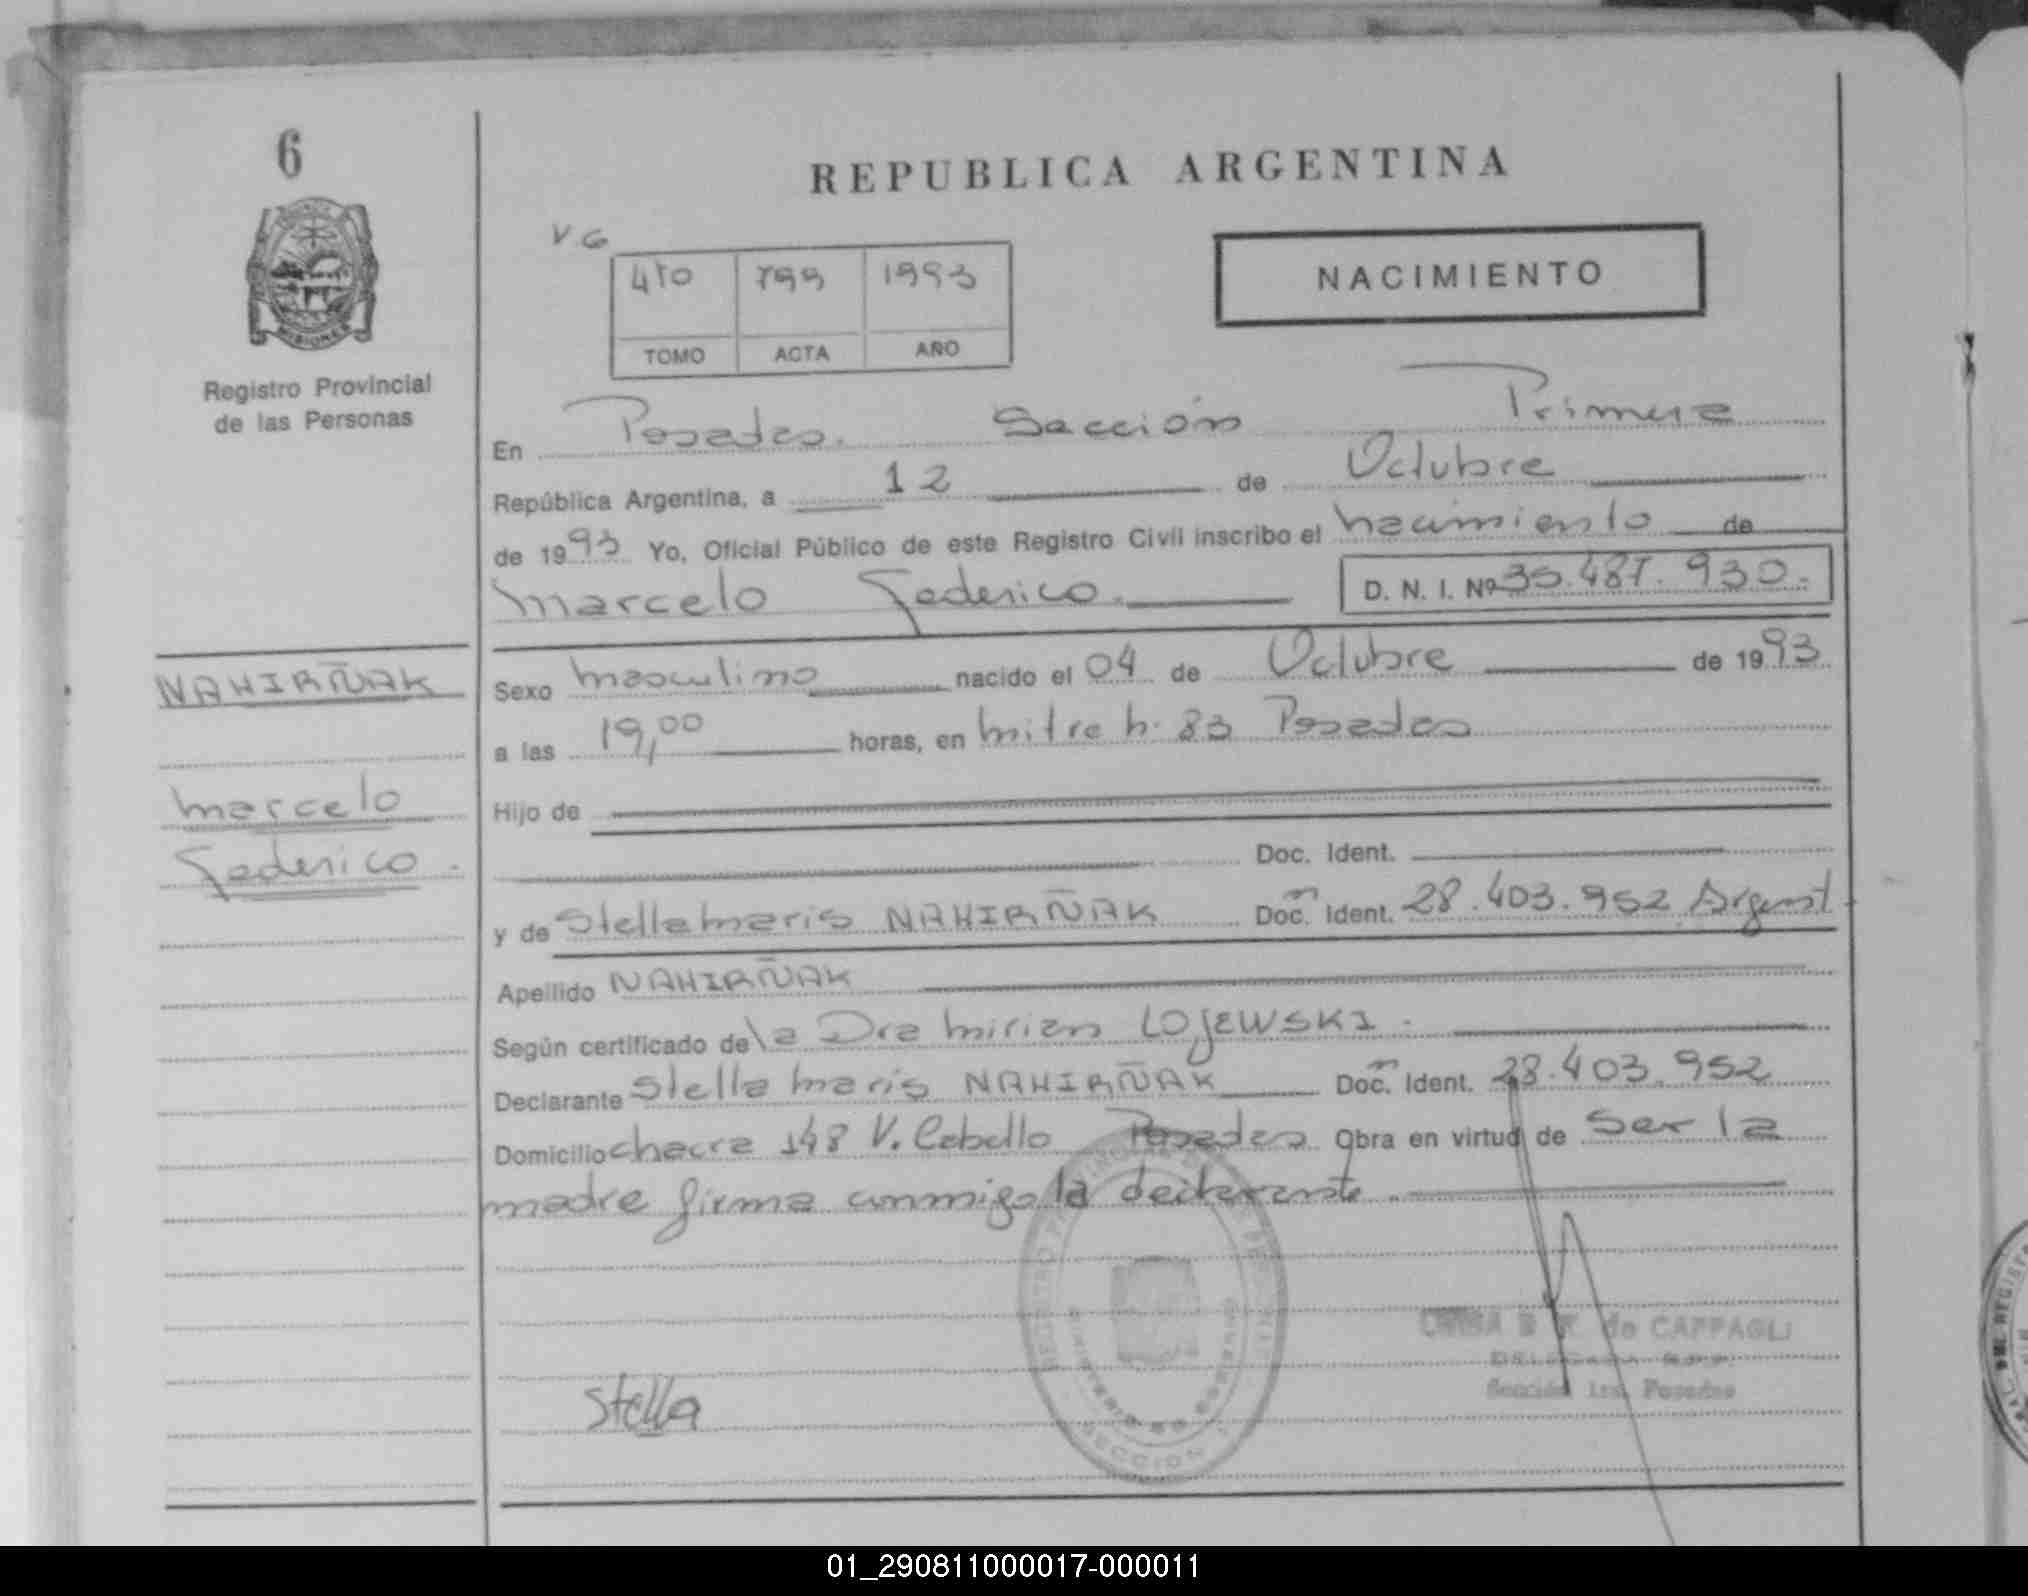 6
REPUBLICA ARGENTINA
V.G
4to 799 1993
TOMO ACTA AÑO
NACIMIENTO
MISIONES
Registro Provincial
de las Personas
En Posadas. Sección Primera
República Argentina, a 12 de Octubre
de 1993 Yo, Oficial Público de este Registro Civil inscribo el nacimiento de
Marcelo Federico. D. N. I. Nº 35.487.930.-
NAHIRÑAK
Marcelo
Federico.
Sexo masculino nacido el 04 de Octubre de 1993
a las 19,00 horas, en mitre n. 83 Posadas
Hijo de
Doc. Ident.
y de Stella maris NAHIRÑAK Doc. Ident. 28.403.952 Argent.
Apellido NAHIRÑAK
Según certificado de la Dra Mirian LOJEWSKI.
Declarante Stella maris NAHIRÑAK Doc. Ident. 28.403.952
Domicilio chacra 148 V. Cabello Posadas Obra en virtud de ser la
madre firma conmigo la declarante.
de CAPPAGLI
DELEGADA R.P.P.
Sección 1ra. Posadas
SECCION
Stella
01_290811000017-000011